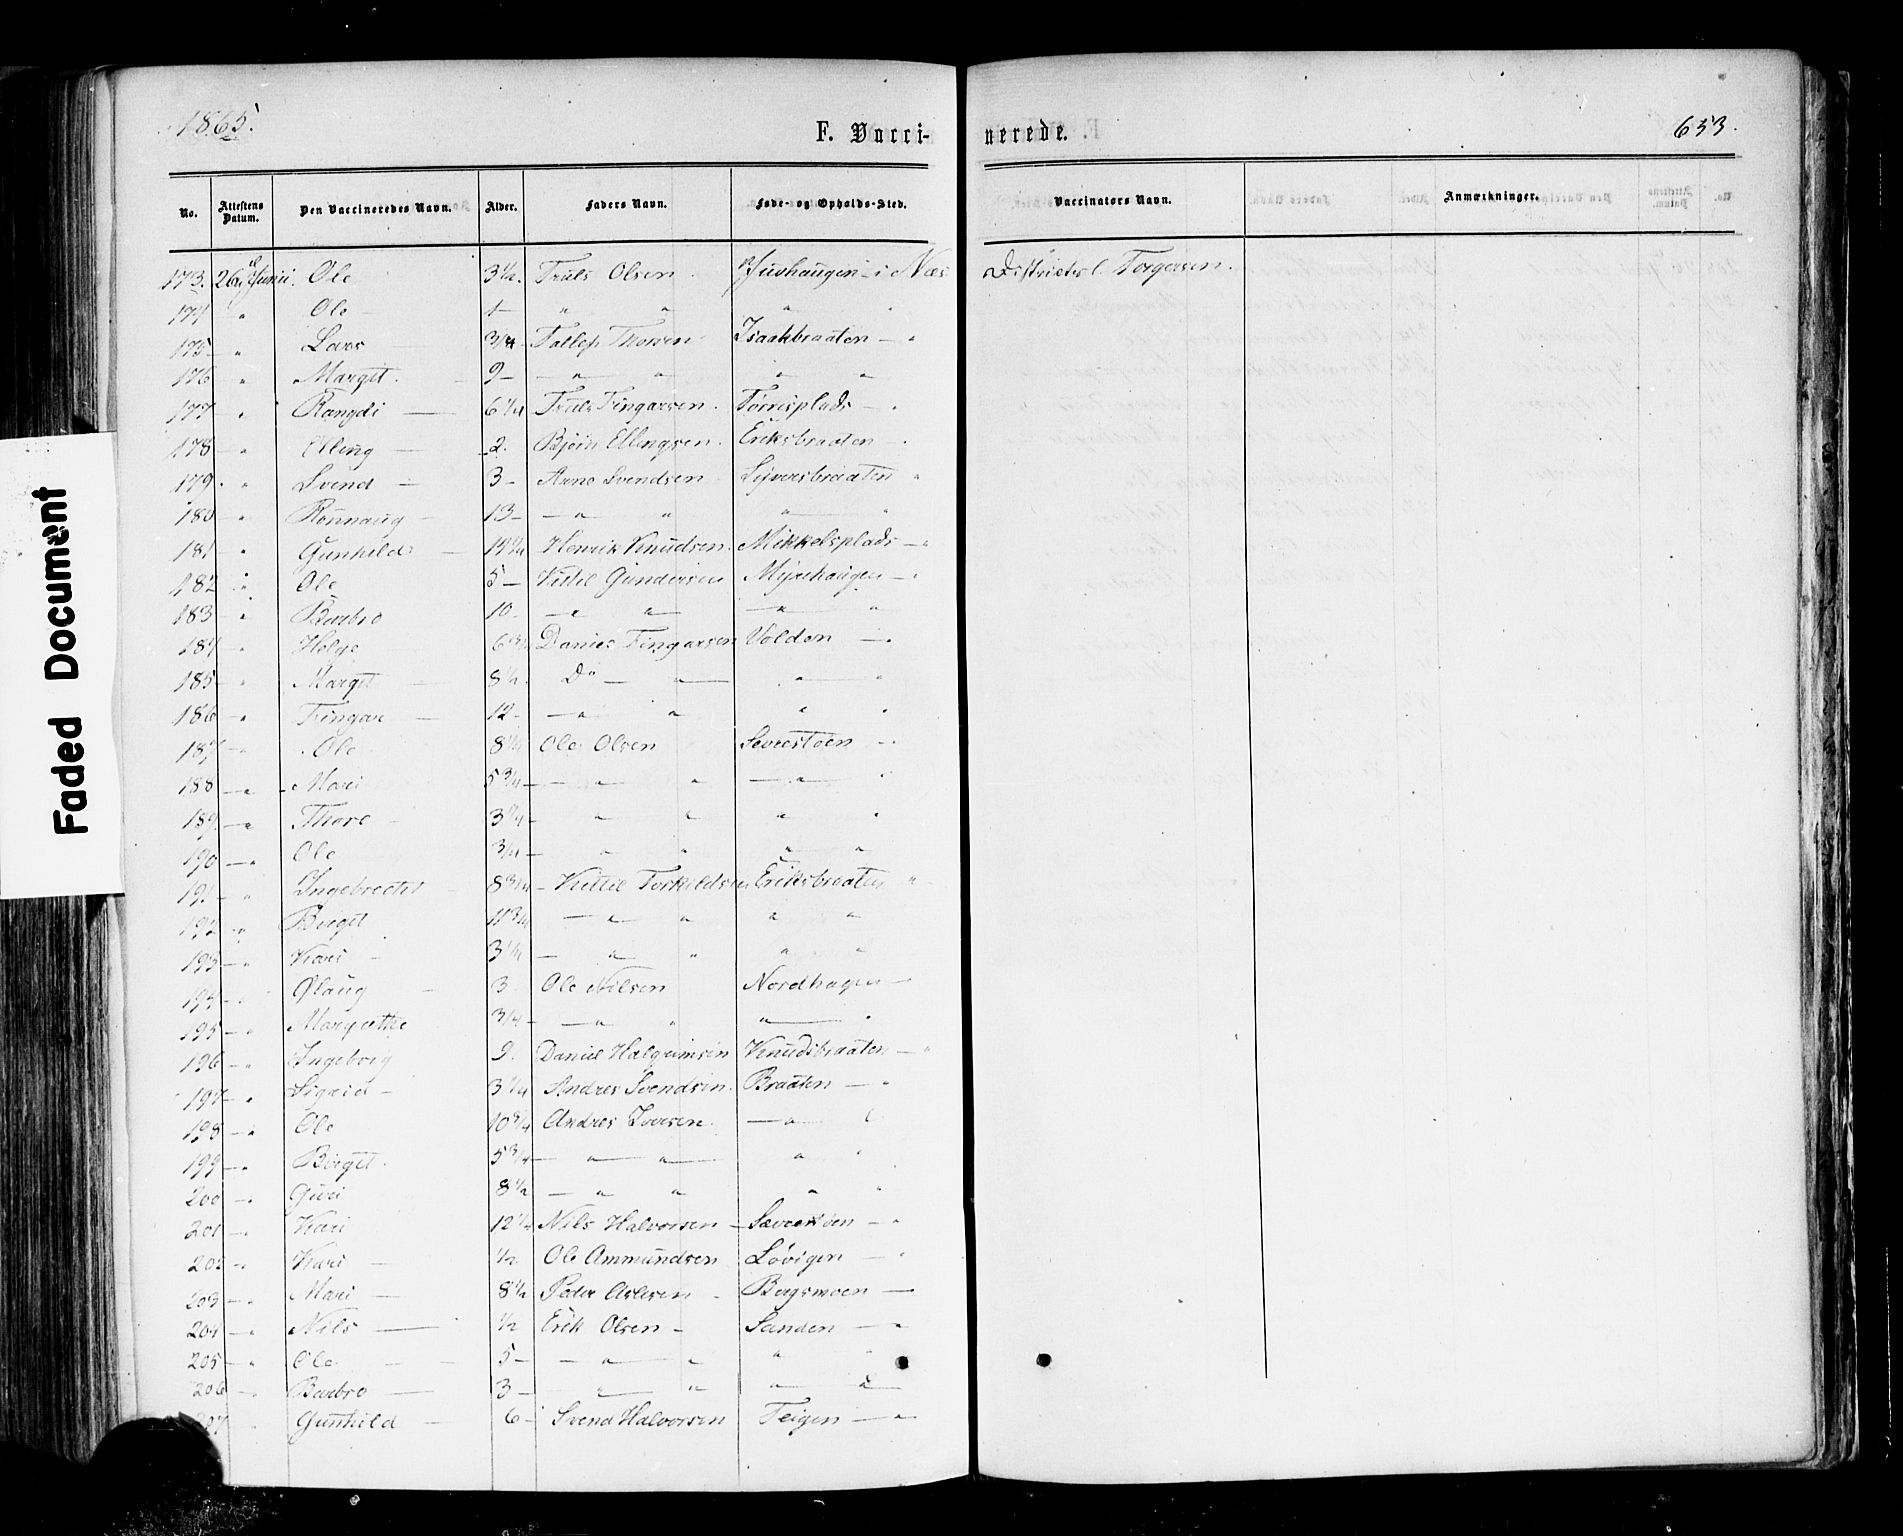 1865.
F. Vacci-
nerede.
653.
No. Attestens Datum. Den Vaccineredes Navn. Alder. Faders Navn. Føde- og Opholds-Sted. Vaccinators Navn. Anmærkninger.
173. 26de Juni. Ole 3½. Truls Olsen i Næs Torgersen.
174 " Ole " "
175 " Lars 3/4 Thorsen Isaakbraaten - "
176 " Margit. 9 - " " " "
177 " Rangdi 6 1/4 Truls Fingarsen. Torrisplads - "
178 - " Elling 2. Bjørn Ellingsen. Eriksbraaten - "
179. " Svend 3 - Arne Svendsen "
180 - " Rønnaug - 13 - " " " "
181 " Gunhild Henrik Knudsen. Mikkelsplads - "
182 " Ole 5 - Kittil Gundersen Myrehaugen - "
183 " Barbro 10 - " " - " "
184 " Helge 6 3/4 Daniel Fingarsen Volden - "
185 - " Margit 8½. Do - " " "
186 - " Fingar 12 - " " " "
187 - " Ole 8 1/4 Ole Olsen Sevrestøen - "
188 - " Mari 5 3/4 - " " - " "
189. - " Thore 3 1/4 - " " " "
190 - " Ole 3/4 - " " " "
191 - " Ingebrecht 8 3/4 - Kittil Torkildsen Eriksbraaten "
192 - " Birgit 11 3/4 - " " " "
193 - " Kari - 3 1/4 - " " " "
194 - " Ølaug - 3 Ole Nilsen Nordhagen -
195 - " Margrethe 3/4 - " " " "
196 - " Ingeborg 9. Daniel Halgrimsen Knudsbraaten - "
197 - " Sigrid - 3 1/4 Andres Svendsen. Braaten - "
198 - " Ole 10 3/4 Andres Iversen. - "
199 - " Birget. 5 3/4 - " " " "
200 - " Guri 8½ - " " " "
201 - " Kari 12 1/4 Nils Halvorsen - Sævrestøen - "
202 - " Kari - ½ Ole Ammundsen Løvigen - "
203 - " Mari - 8½ Peder Aslesen - Bergsmoen -
204 - " Nils ½ Erik Olsen - Sanden - "
205 - " Ole 5 - " " " "
206 - " Barbro 3 - " " " "
207 " Gunhild - 6 - Svend Halvorsen Teigen - "
Faded Document